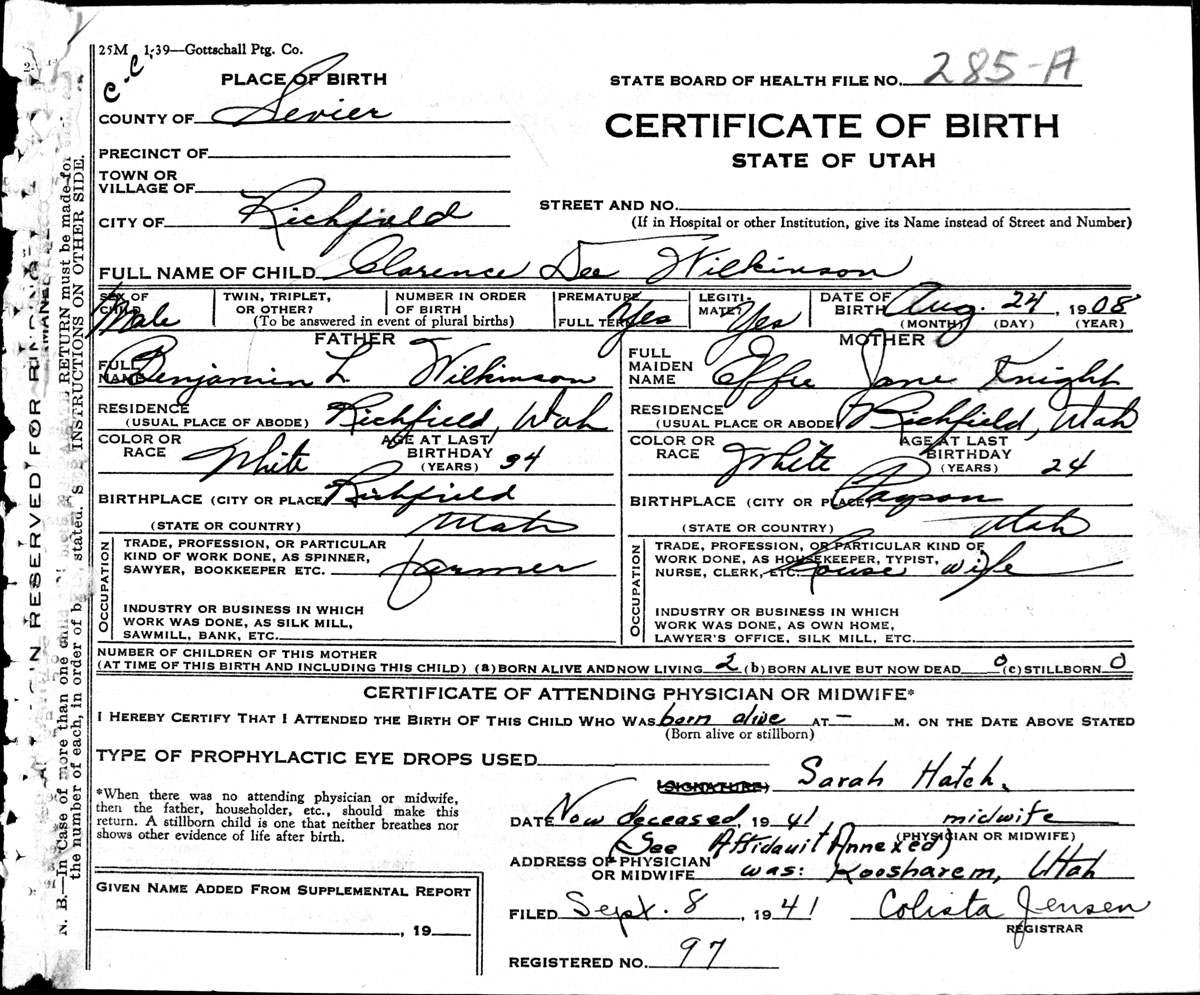 25M 1-39—Gottschall Ptg. Co.
C-C
PLACE OF BIRTH
STATE BOARD OF HEALTH FILE NO. 285-A
COUNTY OF Sevier
CERTIFICATE OF BIRTH
PRECINCT OF
STATE OF UTAH
TOWN OR
VILLAGE OF
STREET AND NO.
CITY OF Richfield
(If in Hospital or other Institution, give its Name instead of Street and Number)
FULL NAME OF CHILD Clarence Dee Wilkinson
SEX OF CHILD Male
TWIN, TRIPLET, OR OTHER? NUMBER IN ORDER OF BIRTH
(To be answered in event of plural births)
PREMATURE
FULL TERM Yes
LEGITI-
MATE? Yes
DATE OF BIRTH Aug. 24, 1908
(MONTH) (DAY) (YEAR)
FATHER
FULL NAME Benjamin L Wilkinson
RESIDENCE
(USUAL PLACE OF ABODE) Richfield, Utah
COLOR OR RACE White AGE AT LAST BIRTHDAY (YEARS) 34
BIRTHPLACE (CITY OR PLACE) Richfield
(STATE OR COUNTRY) Utah
OCCUPATION
TRADE, PROFESSION, OR PARTICULAR
KIND OF WORK DONE, AS SPINNER,
SAWYER, BOOKKEEPER ETC. farmer
INDUSTRY OR BUSINESS IN WHICH
WORK WAS DONE, AS SILK MILL,
SAWMILL, BANK, ETC.
MOTHER
FULL MAIDEN NAME Effie Jane Knight
RESIDENCE
(USUAL PLACE OR ABODE) Richfield, Utah
COLOR OR RACE White AGE AT LAST BIRTHDAY (YEARS) 24
BIRTHPLACE (CITY OR PLACE) Payson
(STATE OR COUNTRY) Utah
OCCUPATION
TRADE, PROFESSION, OR PARTICULAR KIND OF
WORK DONE, AS HOUSEKEEPER, TYPIST,
NURSE, CLERK, ETC. House wife
INDUSTRY OR BUSINESS IN WHICH
WORK WAS DONE, AS OWN HOME,
LAWYER'S OFFICE, SILK MILL, ETC.
NUMBER OF CHILDREN OF THIS MOTHER
(AT TIME OF THIS BIRTH AND INCLUDING THIS CHILD) (a) BORN ALIVE AND NOW LIVING 2 (b) BORN ALIVE BUT NOW DEAD 0 (c) STILLBORN 0
CERTIFICATE OF ATTENDING PHYSICIAN OR MIDWIFE*
I HEREBY CERTIFY THAT I ATTENDED THE BIRTH OF THIS CHILD WHO WAS born alive AT — M. ON THE DATE ABOVE STATED
(Born alive or stillborn)
TYPE OF PROPHYLACTIC EYE DROPS USED
(SIGNATURE) Sarah Hatch.
*When there was no attending physician or midwife,
then the father, householder, etc., should make this
return. A stillborn child is one that neither breathes nor
shows other evidence of life after birth.
DATE Now deceased, 1941 midwife
(PHYSICIAN OR MIDWIFE)
(See Affidavit Annexed)
ADDRESS OF PHYSICIAN
OR MIDWIFE was: Koosharem, Utah
GIVEN NAME ADDED FROM SUPPLEMENTAL REPORT
, 19
FILED Sept. 8, 1941 Colista Jensen
REGISTRAR
REGISTERED NO. 97
RESERVED FOR
N. B.—In Case of more than one child RETURN must be made for
the number of each, in order of b stated. S INSTRUCTIONS ON OTHER SIDE.